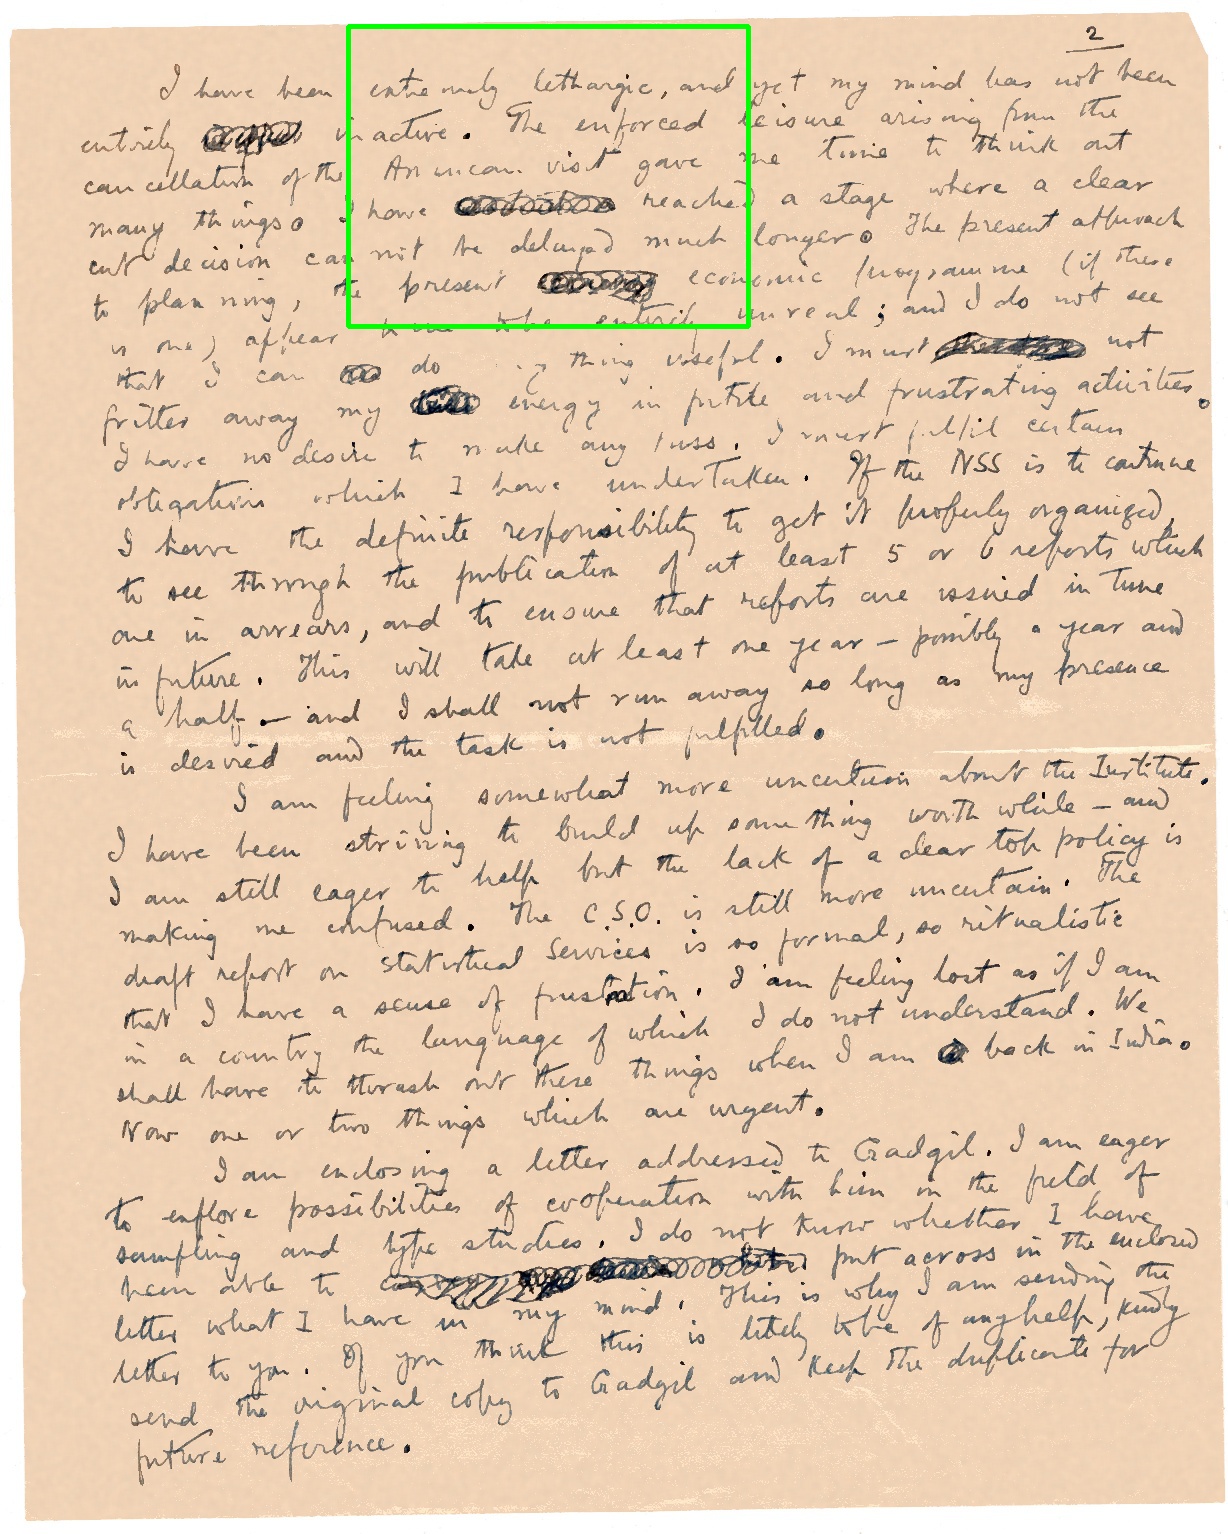 2
I have been extremely lethargic, and yet my mind has not been
entirely inactive. The enforced leisure arising from the
cancellation of the American visit gave me time to think out
many things. I have reached a stage where a clear
cut decision can not be delayed much longer. The present approach
to planning, the present economic programme (if there
is one) appear to me to be entirely unreal; and I do not see
that I can do thing useful. I must not
fritter away my energy in futile and frustrating activities.
I have no desire to make any fuss. I must fulfil certain
obligations which I have undertaken. If the NSS is to continue
I have the definite responsibility to get it properly organized,
to see through the publication of at least 5 or 6 reports which
are in arrears, and to ensure that reports are issued in time
in future. This will take at least one year – possibly a year and
a half – and I shall not run away so long as my presence
is desired and the task is not fulfilled.
I am feeling somewhat more uncertain about the Institute.
I have been striving to build up something worth while – and
I am still eager to help but the lack of a clear top policy is
making me confused. The C.S.O. is still more uncertain. The
draft report on Statistical Services is so formal, so ritualistic
that I have a sense of frustration. I am feeling lost as if I am
in a country the language of which I do not understand. We
shall have to thrash out these things when I am back in India.
Now one or two things which are urgent.
I am enclosing a letter addressed to Gadgil. I am eager
to explore possibilities of cooperation with him in the field of
sampling and type studies. I do not know whether I have
been able to put across in the enclosed
letter what I have in my mind. This is why I am sending the
letter to you. If you think this is likely to be of any help, kindly
send the original copy to Gadgil and keep the duplicate for
future reference.